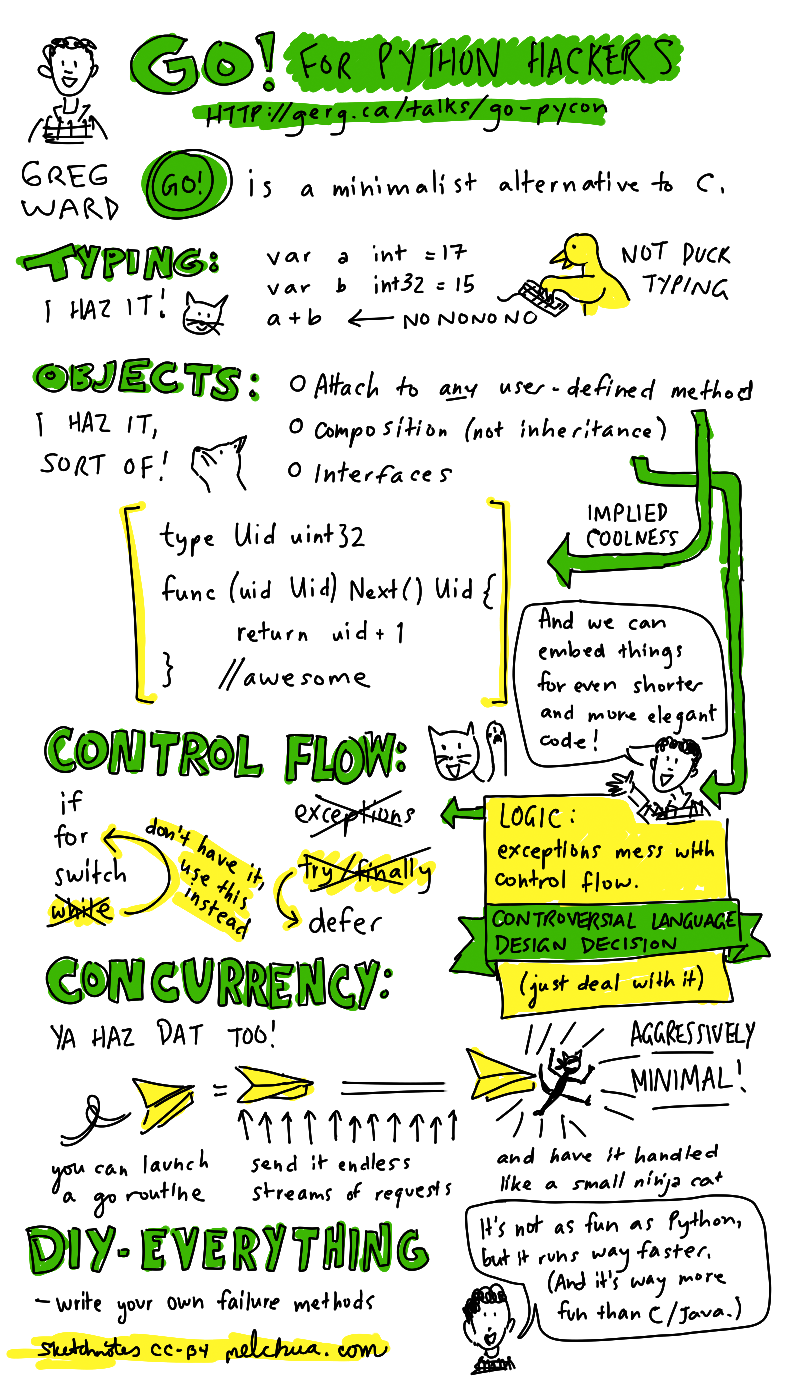 GO! FOR PYTHON HACKERS
HTTP://gerg.ca/talks/go-pycon
GREG
WARD
GO! is a minimalist alternative to C.
TYPING:
I HAZ IT!
var a int = 17
var b int32 = 15
a + b ← NO NO NO NO
NOT DUCK
TYPING
OBJECTS:
I HAZ IT,
SORT OF!
o Attach to any user-defined method
o Composition (not inheritance)
o Interfaces
IMPLIED
COOLNESS
type Uid uint32
func (uid Uid) Next() Uid {
return uid + 1
} //awesome
And we can
embed things
for even shorter
and more elegant
code!
CONTROL FLOW:
if
for
switch
while
don't have it,
use this
instead
exceptions
try/finally
defer
LOGIC:
exceptions mess with
control flow.
CONTROVERSIAL LANGUAGE
DESIGN DECISION
(just deal with it)
CONCURRENCY:
YA HAZ DAT TOO!
AGGRESSIVELY
MINIMAL!
you can launch
a go routine
send it endless
streams of requests
and have it handled
like a small ninja cat
DIY-EVERYTHING
- write your own failure methods
It's not as fun as Python,
but it runs way faster.
(And it's way more
fun than C/Java.)
sketchnotes CC-BY melchua.com